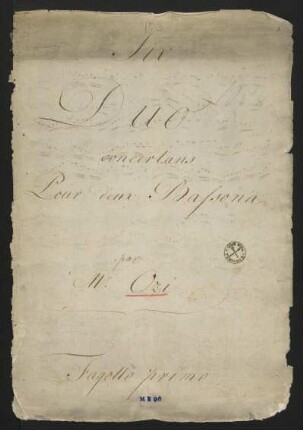 Six
DUO
concertans
Pour deux Bassons
par
Mr. Ozi
Fagotto primo